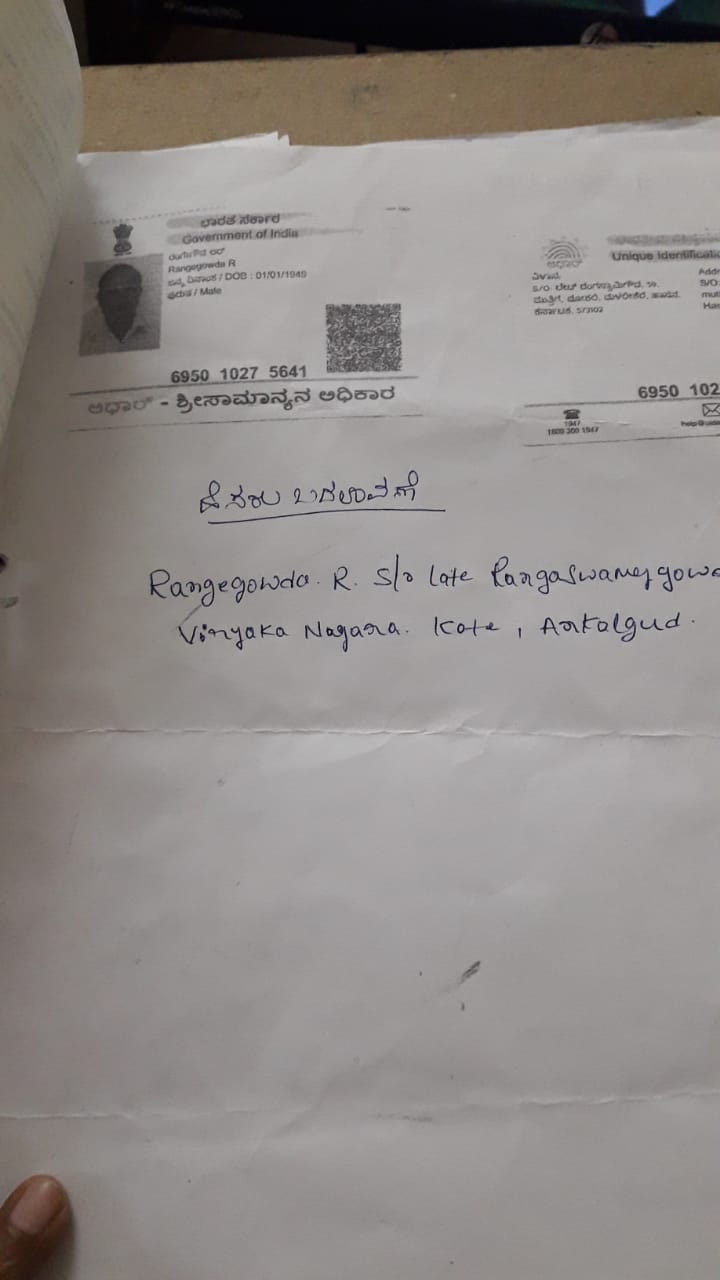 ಭಾರತ ಸರ್ಕಾರ
Government of India
ರಂಗೇಗೌಡ ಆರ್
Rangegowda R
ಜನ್ಮ ದಿನಾಂಕ / DOB : 01/01/1949
ಪುರುಷ / Male
6950 1027 5641
ಆಧಾರ್ - ಶ್ರೀಸಾಮಾನ್ಯನ ಅಧಿಕಾರ
Unique Identificati
ವಿಳಾಸ:
S/O:
ಕರ್ನಾಟಕ, 573102
6950 102
1947
1800 300 1947
ಹೆಸರು ಬದಲಾವಣೆ
Rangegowda. R. S/o late Rangaswamygowd
Vinyaka Nagara. Kote, Arkalgud.